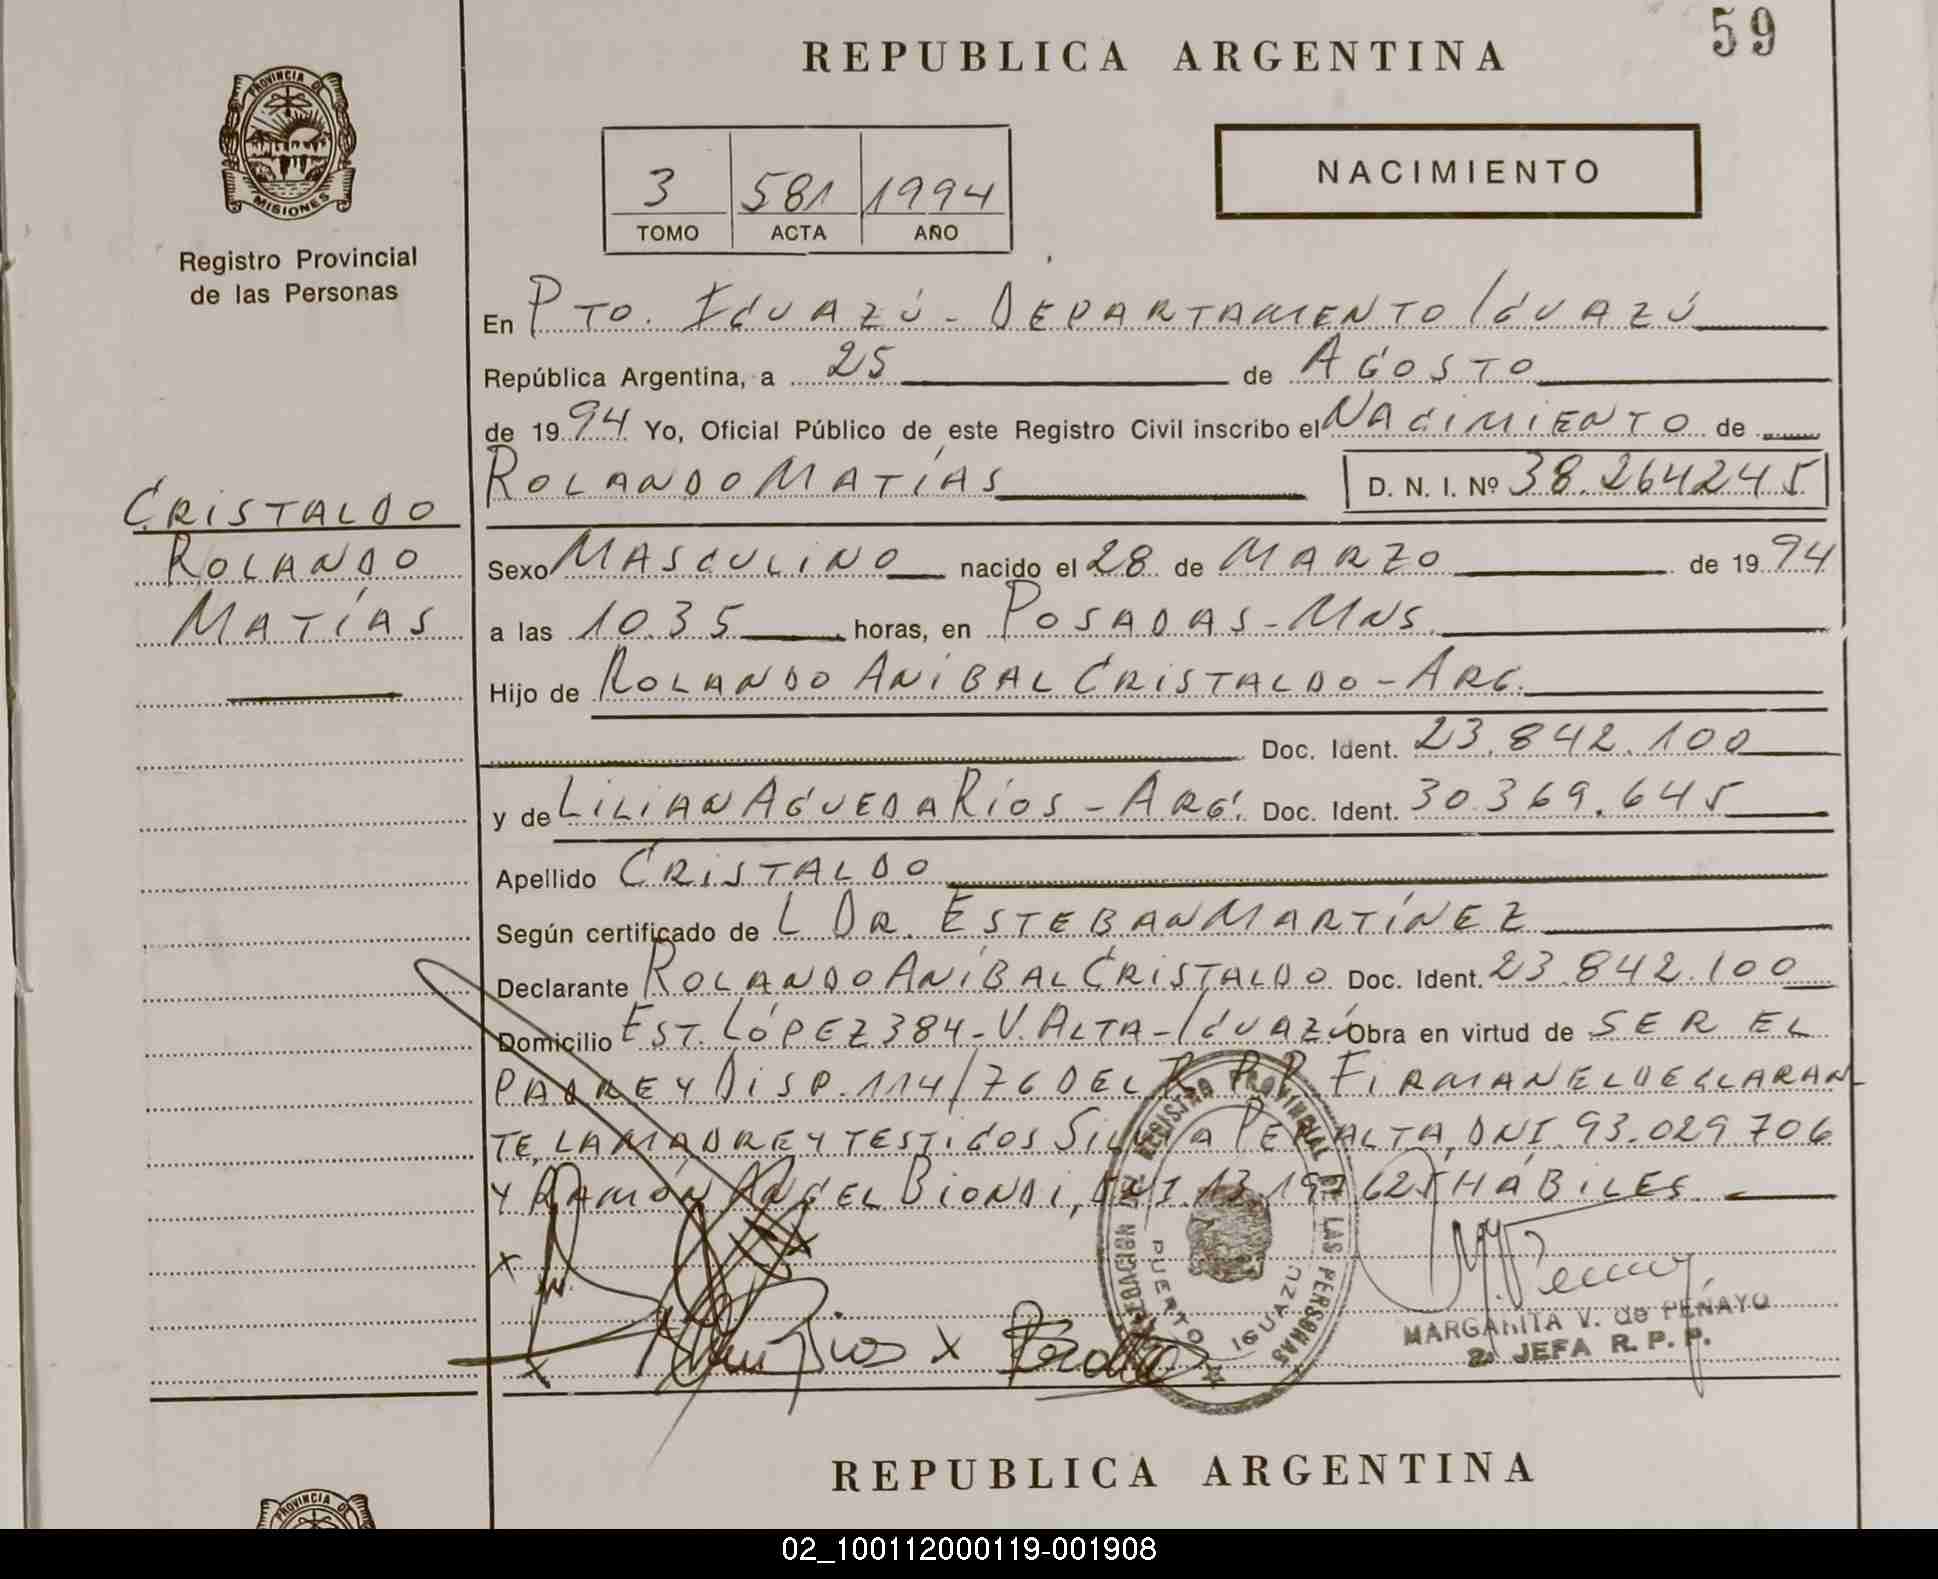 59
REPUBLICA ARGENTINA
PROVINCIA DE
MISIONES
Registro Provincial
de las Personas
NACIMIENTO
3 581 1994
TOMO ACTA AÑO
En PTO. IGUAZÚ - DEPARTAMENTO IGUAZÚ
República Argentina, a 25 de AGOSTO
de 1994 Yo, Oficial Público de este Registro Civil inscribo el NACIMIENTO de
ROLANDO MATÍAS D. N. I. Nº 38.264245
CRISTALDO
ROLANDO
MATÍAS
Sexo MASCULINO nacido el 28 de MARZO de 1994
a las 10.35 horas, en POSADAS - MNS.
Hijo de ROLANDO ANIBAL CRISTALDO - ARG.
Doc. Ident. 23.842.100
y de LILIAN AGUEDA RÍOS - ARG. Doc. Ident. 30.369.645
Apellido CRISTALDO
Según certificado de L DR. ESTEBAN MARTÍNEZ
Declarante ROLANDO ANÍBAL CRISTALDO Doc. Ident. 23.842.100
Domicilio EST. LÓPEZ 384 - V. ALTA - IGUAZÚ Obra en virtud de SER EL
PADRE Y DISP. 114/76 DEL R. P. P. FIRMAN EL DECLARAN
TE, LA MADRE Y TESTIGOS SILVIA PERALTA, DNI. 93.029.706
Y RAMÓN ANGEL BIONDI, DNI. 13.197.625 HÁBILES
REGISTRO PROVINCIAL DE LAS PERSONAS
PUERTO IGUAZU
Rios
MARGARITA V. de PEÑAYO
2ª JEFA R. P. P.
REPUBLICA ARGENTINA
PROVINCIA DE
02_100112000119-001908